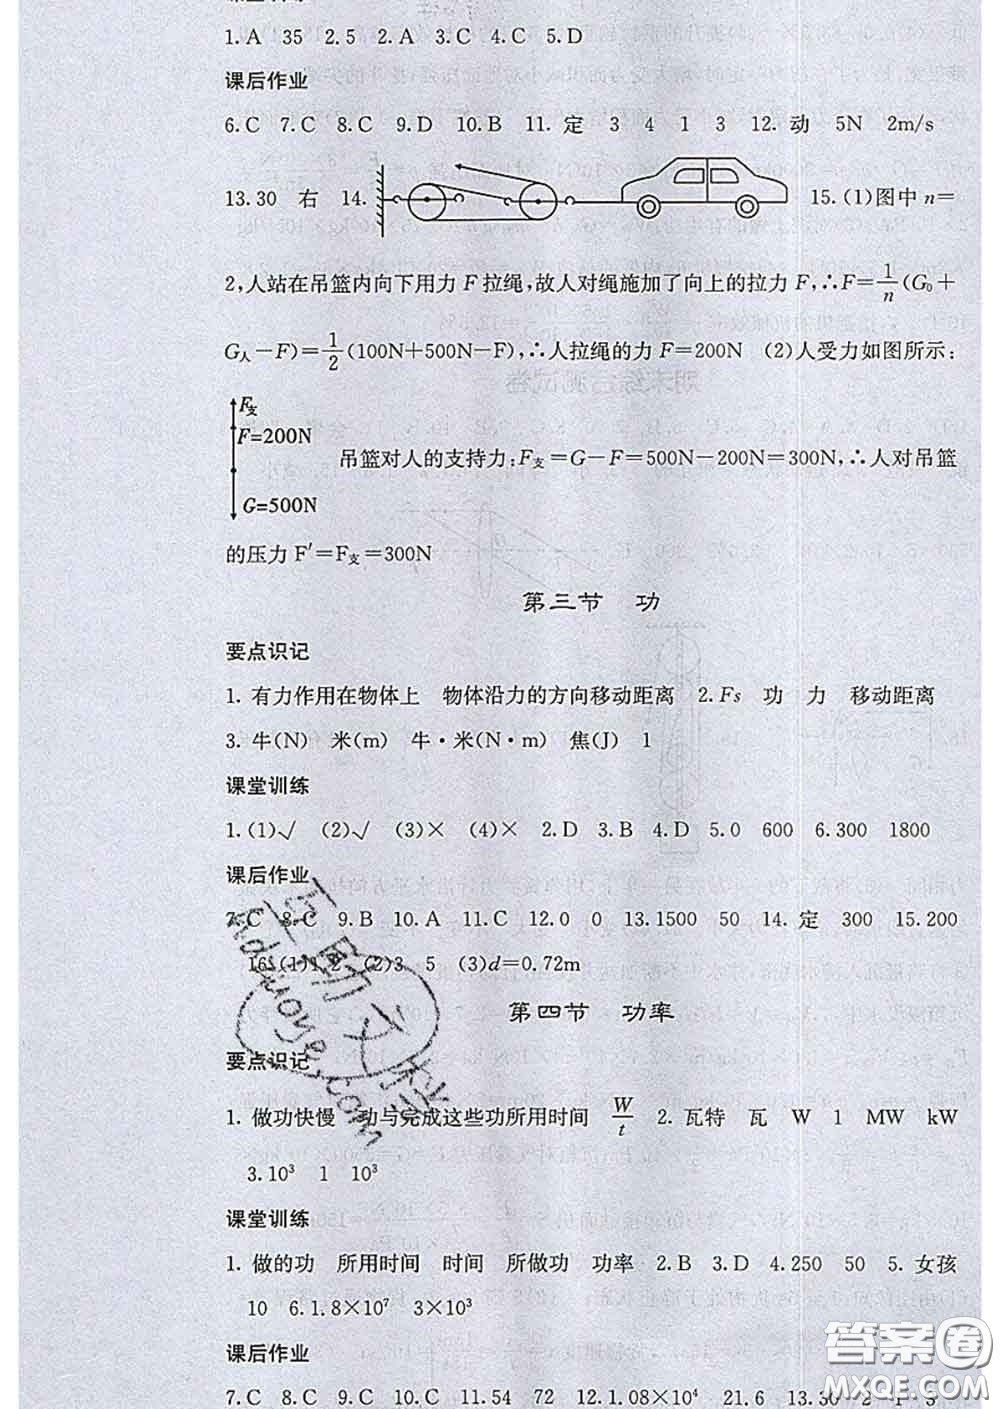 1.A 35 2.5 2.A 3.C 4.C 5.D
课后作业
6.C 7.C 8.C 9.D 10.B 11. 定 3 4 1 3 12. 动 5N 2m/s
13.30 右 14. 15.(1)图中 n=
2,人站在吊篮内向下用力 F 拉绳,故人对绳施加了向上的拉力 F,∴F=1/n(G₀+
G人-F)=1/2(100N+500N-F),∴人拉绳的力 F=200N (2)人受力如图所示:
F支
F=200N
吊篮对人的支持力:F支=G-F=500N-200N=300N,∴人对吊篮
G=500N
的压力 F′=F支=300N
第三节 功
要点识记
1. 有力作用在物体上 物体沿力的方向移动距离 2.Fs 功 力 移动距离
3. 牛(N) 米(m) 牛·米(N·m) 焦(J) 1
课堂训练
1.(1)√ (2)√ (3)× (4)× 2.D 3.B 4.D 5.0 600 6.300 1800
课后作业
7.C 8.C 9.B 10.A 11.C 12.0 0 13.1500 50 14. 定 300 15.200
16.(1)1.2 (2)3 5 (3)d=0.72m
第四节 功率
要点识记
1. 做功快慢 功与完成这些功所用时间 W/t 2. 瓦特 瓦 W 1 MW kW
3.10³ 1 10³
课堂训练
1. 做的功 所用时间 时间 所做功 功率 2.B 3.D 4.250 50 5. 女孩
10 6.1.8×10⁷ 3×10³
课后作业
7.C 8.C 9.C 10.C 11.54 72 12.1.08×10⁴ 21.6 13.30 2
答案圈
MXQE.COM